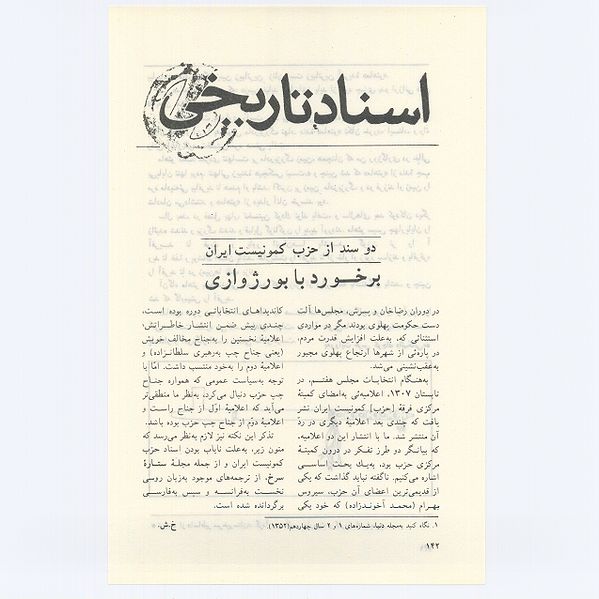 اسناد تاریخی
دو سند از حزب کمونیست ایران
برخورد با بورژوازی
در دوران رضاخان و پسرش، مجلس‌ها آلت
دست حکومت پهلوی بودند مگر در مواردی
استثنائی که، به‌علت افزایش قدرت مردم،
در پاره‌ئی از شهرها ارتجاع پهلوی مجبور
به‌عقب‌نشینی می‌شد.
به‌هنگام انتخابات مجلس هفتم، در
تابستان ۱۳۰۷، اعلامیه‌ئی به‌امضای کمیتهٔ
مرکزی فرقهٔ [حزب] کمونیست ایران نشر
یافت که چندی بعد اعلامیهٔ دیگری در ردّ
آن منتشر شد. ما با انتشار این دو اعلامیه،
که بیانگر دو طرز تفکر در درون کمیتهٔ
مرکزی حزب بود، به‌یك بحث اساسی
اشاره می‌کنیم. ناگفته نباید گذاشت که یکی
از قدیمی‌ترین اعضای آن حزب، سیروس
بهرام (محمد آخوندزاده) که خود یکی
کاندیداهای انتخاباتی دوره بوده است،
چندی پیش ضمن انتشار خاطراتش،
اعلامیهٔ نخستین را به‌جناح مخالف خویش
(یعنی جناح چپ به‌رهبری سلطانزاده) و
اعلامیهٔ دوم را به‌خود منتسب داشت. امّا با
توجه به‌سیاست عمومی که همواره جناح
چپ حزب دنبال می‌کرد، به‌نظر ما منطقی‌تر
می‌آید که اعلامیهٔ اوّل از جناح راست و
اعلامیهٔ دوّم از جناح چپ حزب بوده باشد.
تذکر این نکته نیز لازم به‌نظر می‌رسد که
متون زیر، به‌علت نایاب بودن اسناد حزب
کمونیست ایران و از جمله مجلهٔ ستارهٔ
سرخ، از ترجمه‌های موجود به‌زبان روسی
نخست به‌فرانسه و سپس به‌فارسی
برگردانده شده است.
خ.ش.
۱. نگاه کنید به‌مجله دنیا، شماره‌های ۱ و ۲ سال چهاردهم (۱۳۵۲).
۱۴۲